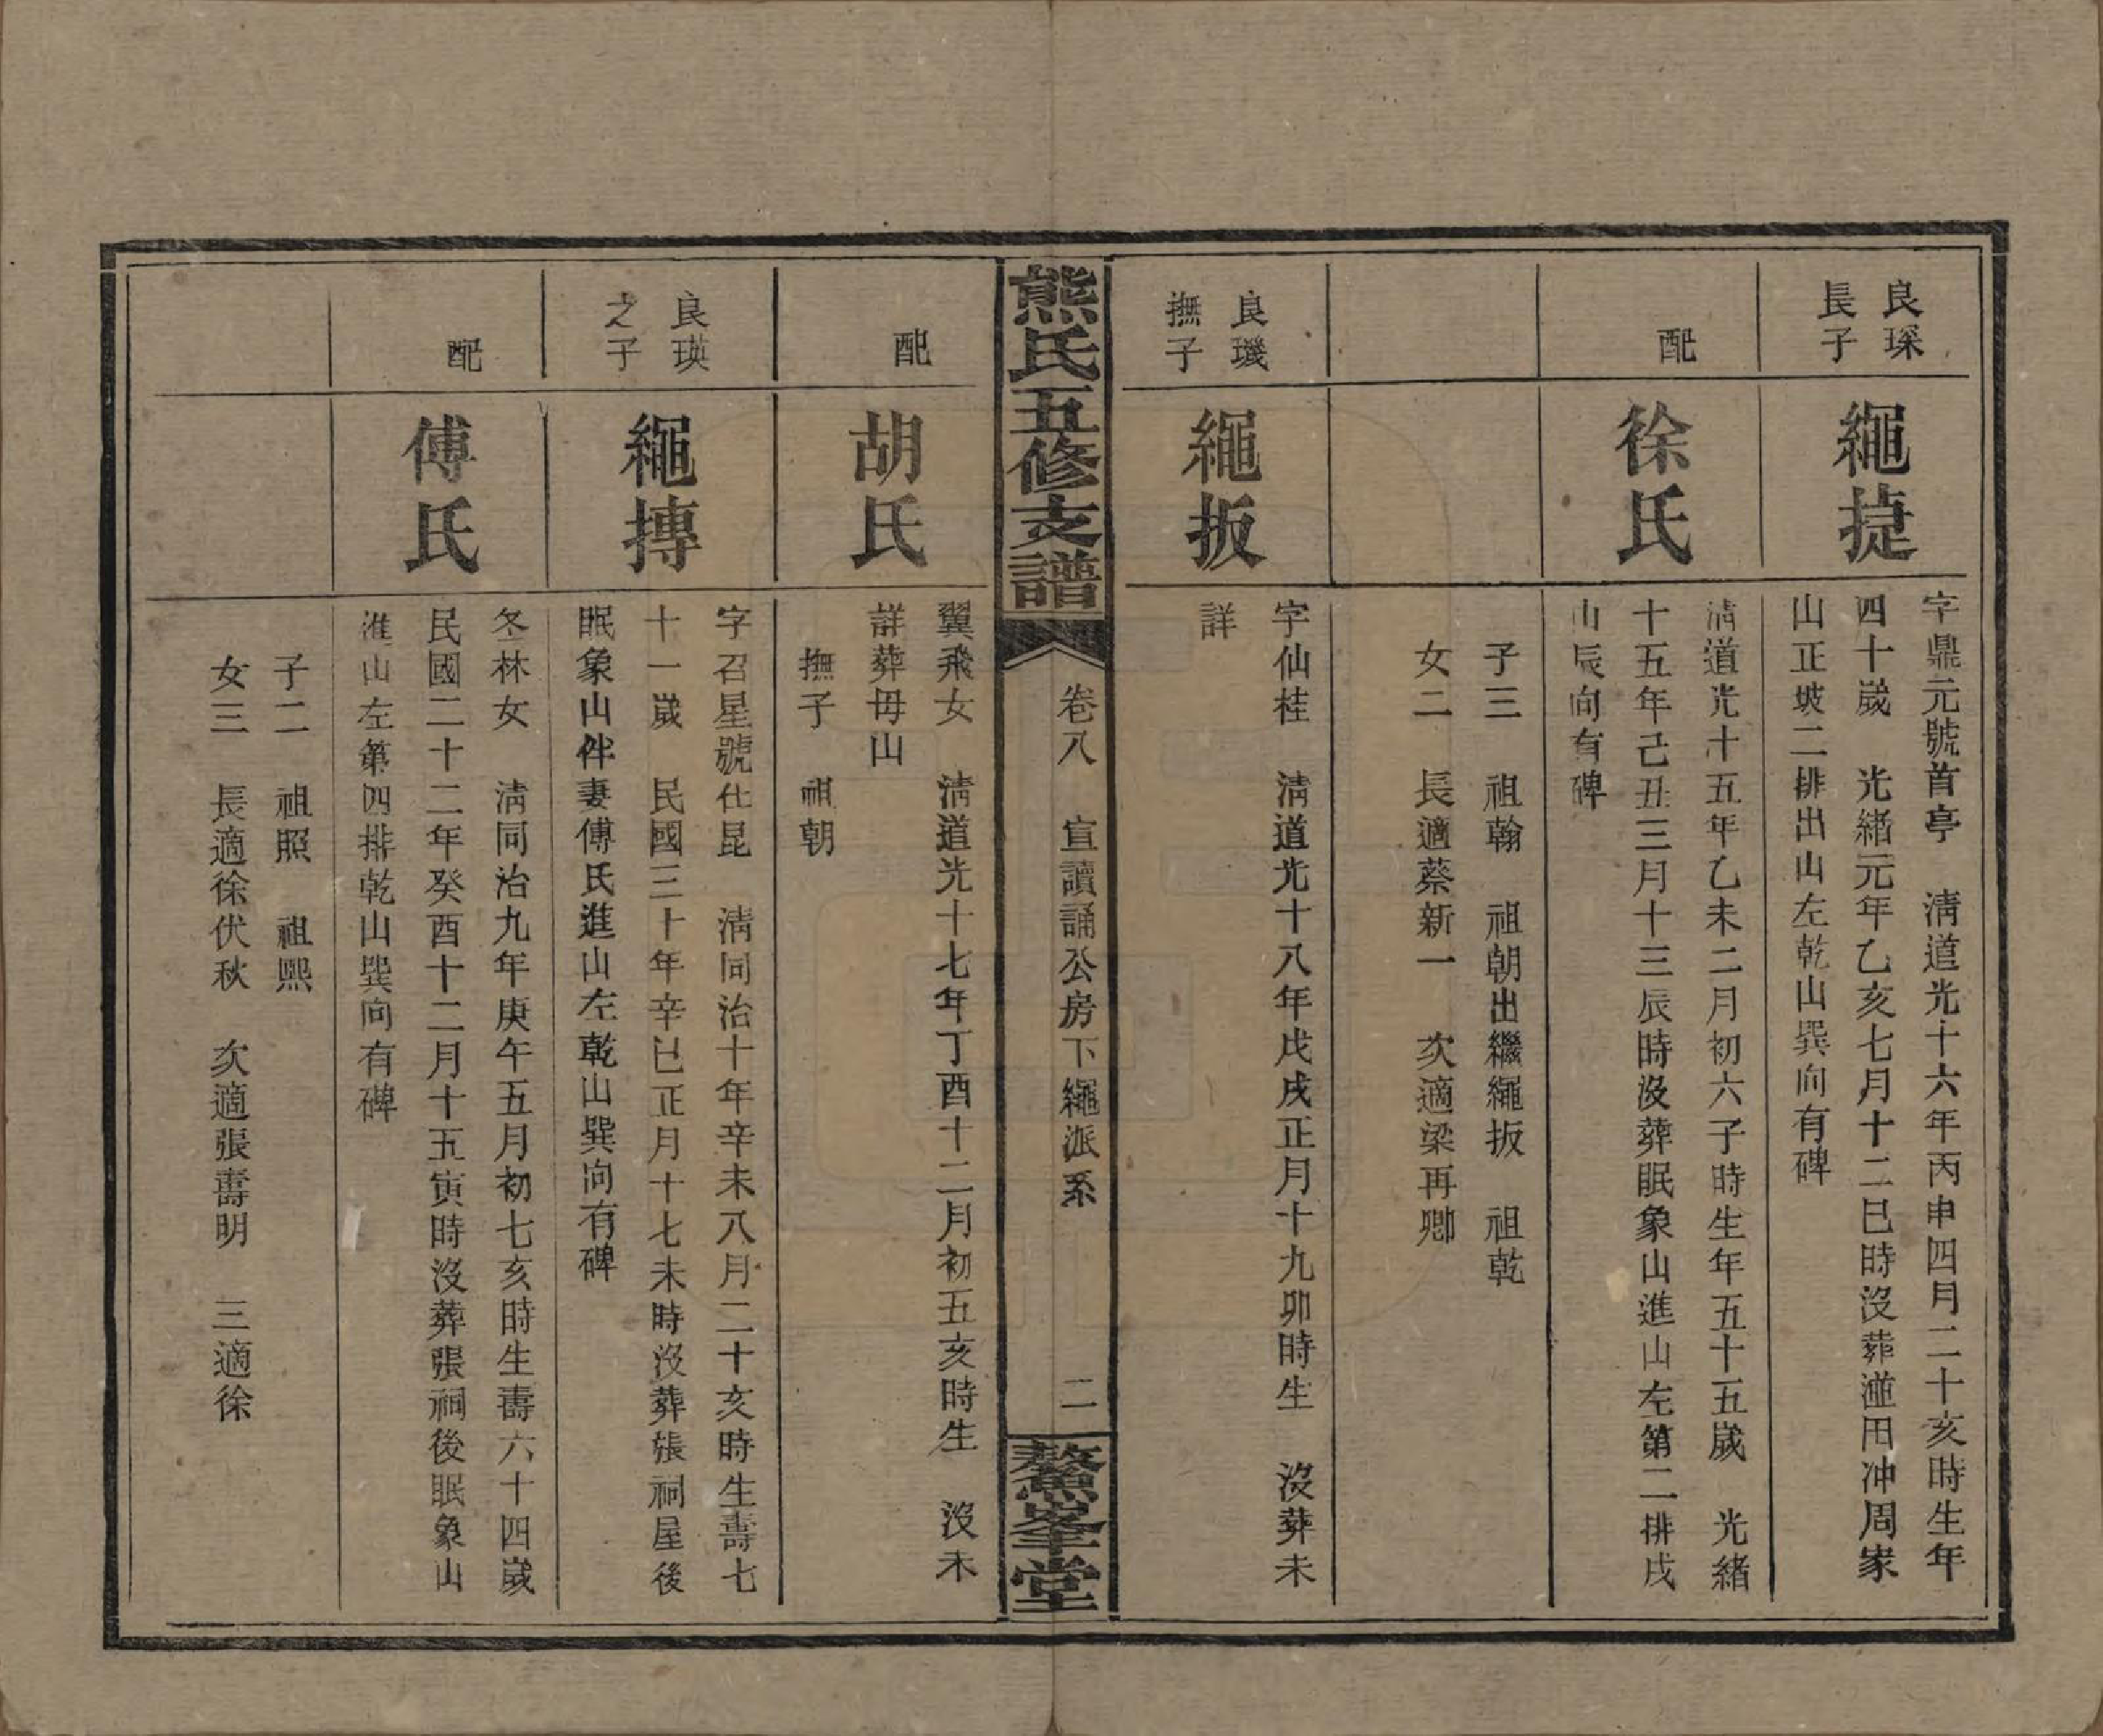 良琛
長子
繩捷
字鼎元號首亭　淸道光十六年丙申四月二十亥時生年
四十歲　光緒元年乙亥七月十二巳時沒葬湴田冲周家
山正坡二排出山左乾山巽向有碑
配
徐氏
淸道光十五年乙未二月初六子時生年五十五歲　光緒
十五年己丑三月十三辰時沒葬眠象山進山左第二排戌
山辰向有碑
子三　祖翰　祖朝出繼繩扳　祖乾
女二　長適蔡新一　次適梁再卿
良璣
撫子
繩扳
字仙桂　淸道光十八年戊戌正月十九卯時生　沒葬未
詳
熊氏五修支譜
卷八　宣讀誦公房下繩派系
二
鰲峯堂
配
胡氏
翼飛女　淸道光十七年丁酉十二月初五亥時生　沒未
詳葬毋山
撫子　祖朝
良瑛
之子
繩摶
字召星號仕昆　淸同治十年辛未八月二十亥時生壽七
十一歲　民國三十年辛巳正月十七未時沒葬張祠屋後
眠象山伴妻傅氏進山左乾山巽向有碑
配
傅氏
冬林女　淸同治九年庚午五月初七亥時生壽六十四歲
民國二十二年癸酉十二月十五寅時沒葬張祠後眠象山
進山左第四排乾山巽向有碑
子二　祖照　祖熙
女三　長適徐伏秋　次適張壽明　三適徐